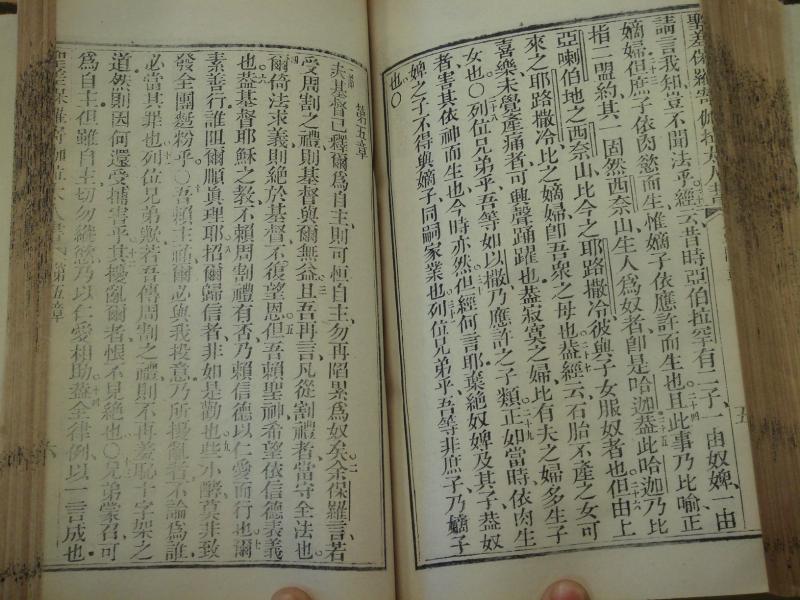 聖差保羅寄伽拉太人書
五
請言我知豈不聞法乎經云昔時亞伯拉罕有二子一由奴婢一由
嫡婦但庶子依肉慾而生惟嫡子依應許而生也且此事乃比喻正
指二盟約其一固然西奈山生人爲奴者卽是哈迦葢此哈迦乃比
亞喇伯地之西奈山比今之耶路撒冷彼與子女服奴者也但由上
來之耶路撒冷比之嫡婦卽吾衆之母也葢經云石胎不產之女可
喜樂未覺產痛者可興聲踊躍也葢寂寞之婦比有夫之婦多生子
女也○列位兄弟乎吾等如以撒乃應許之子類正如當時依肉生
者害其依神而生也今時亦然但經何言耶葉絕奴婢及其子葢奴
婢之子不得與嫡子同嗣家業也列位兄弟乎吾等非庶子乃嫡子
也○
第五章
夫基督已釋爾爲自主則可恒自主勿再陷累爲奴矣余保羅言若
受周割之禮則基督與爾無益且吾再言凡從割禮者當守全法也
爾倚法求義則絕於基督不復望恩但吾賴聖神希望依信德表義
也葢基督耶穌之教不賴周割禮有否乃賴信德以仁愛而行也爾
素善行誰阻爾順眞理耶招爾歸信者非如是勸也些小酵莫非致
發全團麪粉乎○吾賴主裡爾必與我投意乃所擾亂者不論爲誰
必當其罪也列位兄弟歟若吾傳周割之禮則不再羞恥十字架之
道然則因何還受捕害乎其擾亂爾者恨不見絕也○兄弟蒙召可
爲自主但雖自主切勿縱慾乃以仁愛相助葢全律例以一言成也
聖差保羅寄伽拉太人書 第五章
六